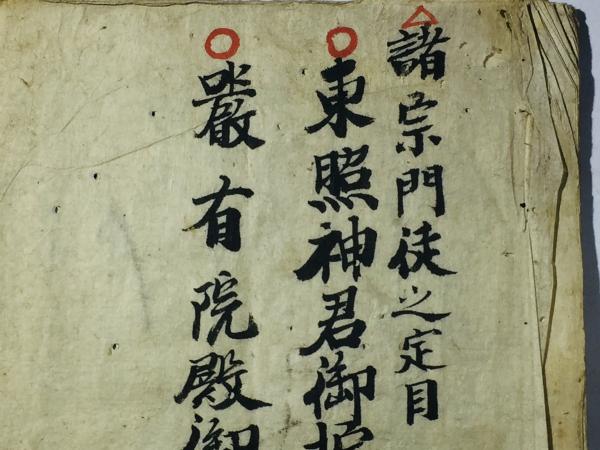 諸宗門徒之定目
東照神君御掟
嚴有院殿御